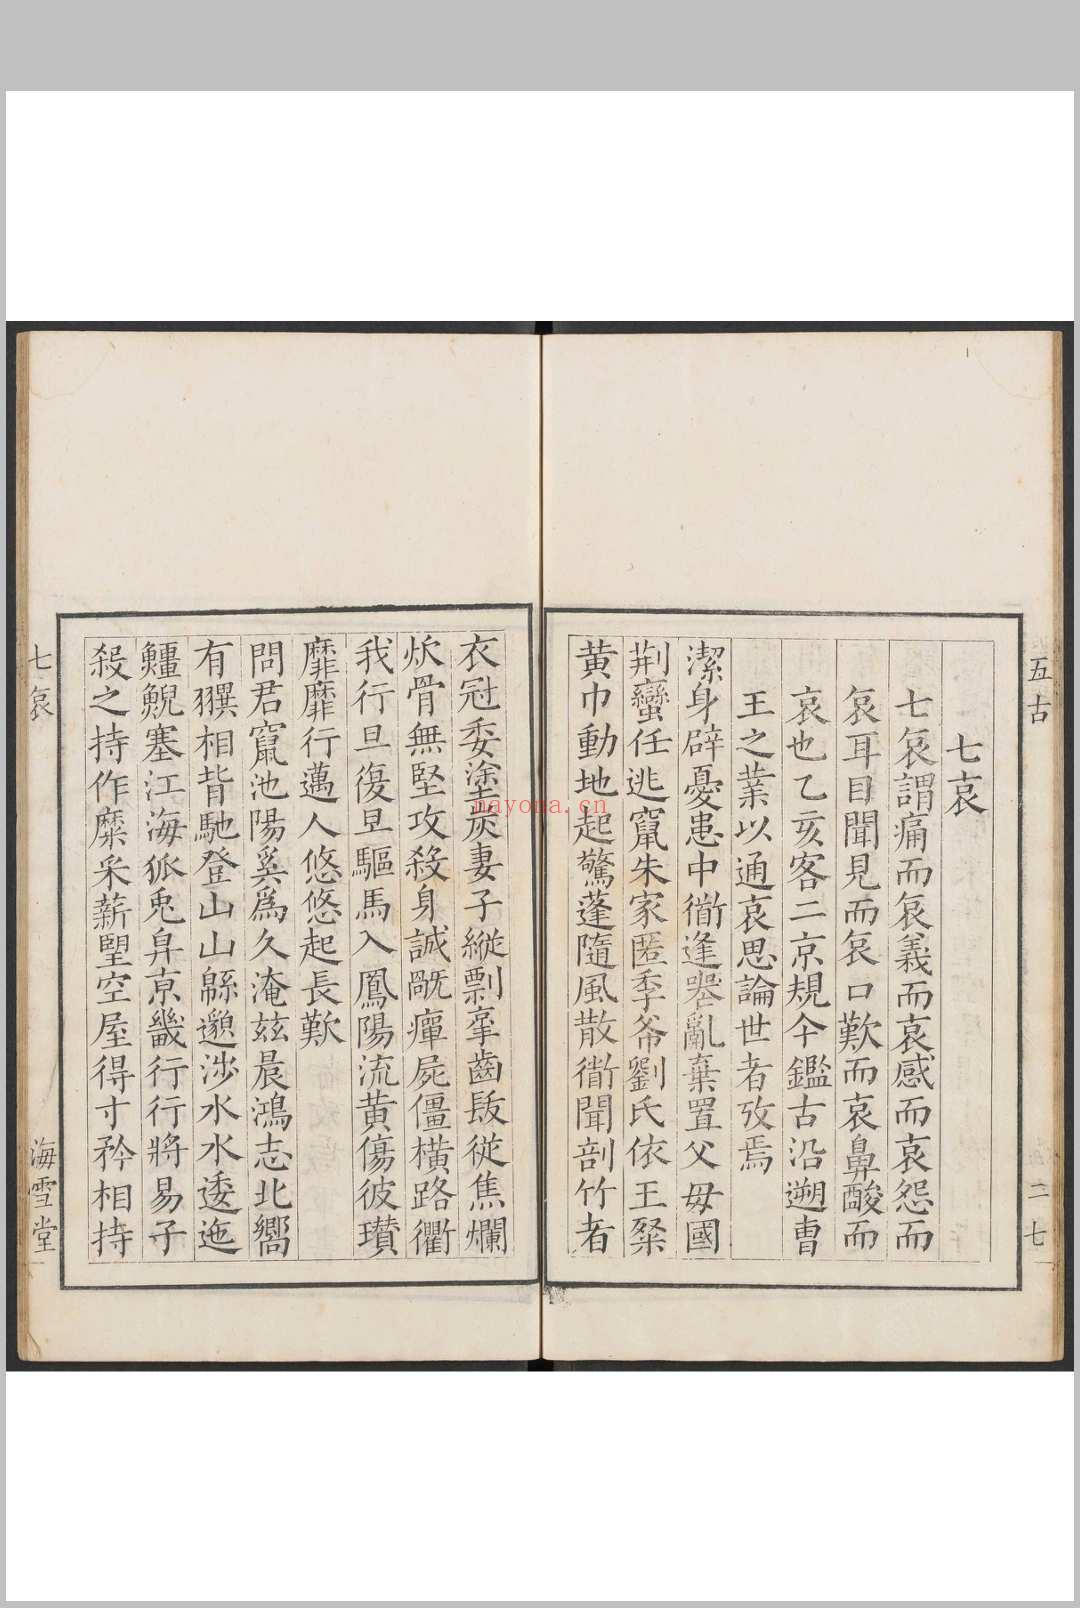 五古
二七
七哀
七哀謂痛而哀義而哀感而哀怨而
哀耳目聞見而哀口歎而哀鼻酸而
哀也乙亥客二京規今鑑古沿遡曹
王之業以通哀思論世者攷焉
潔身辟憂患中衢逢亂棄置父毋國
荆蠻任逃竄朱家匿季布劉氏依王粲
黄巾動地起驚蓬隨風散銜聞剖竹者
衣冠委塗炭妻子縱剽掠齒髮從焦爛
炊骨無堅攻殺身誠既癉屍僵橫路衢
我行旦復旦驅馬入鳳陽流黄傷彼瓚
靡靡行邁人悠悠起長歎
問君竄池陽奚爲久淹茲晨鴻志北嚮
有獌相背馳登山山緜邈涉水水逶迤
鱷鯢塞江海狐兎舁京畿行行將易子
殺之持作糜采薪塈空屋得寸矜相持
七哀
海雪堂
nayona.cn